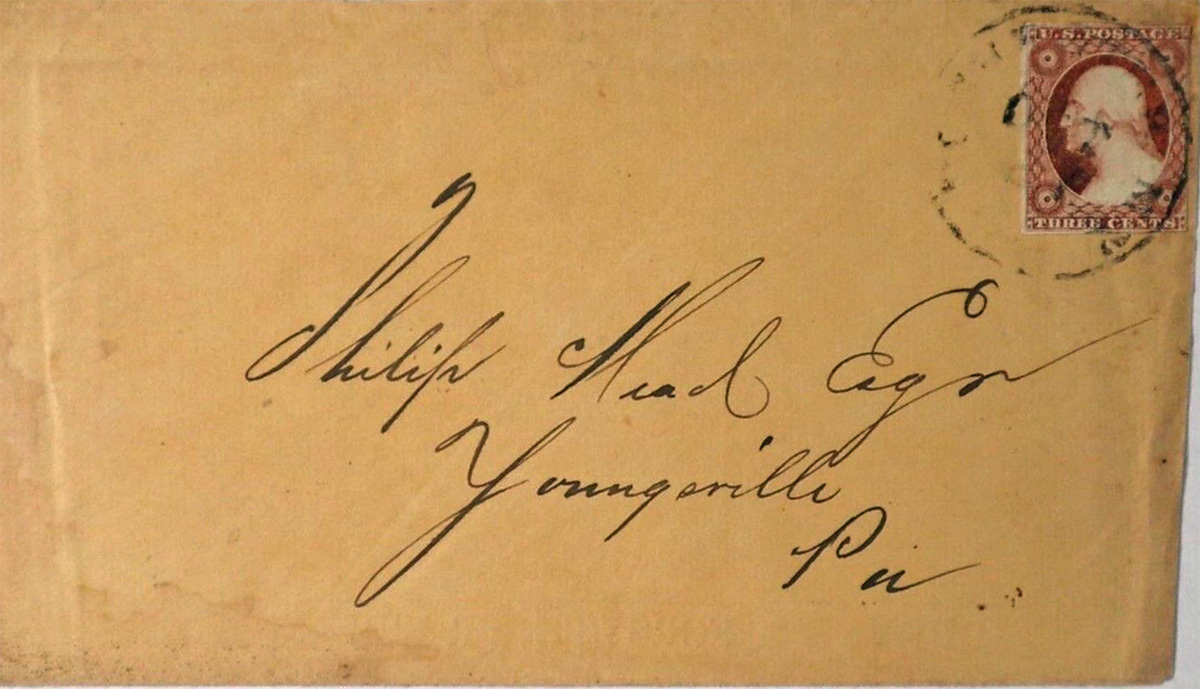 U.S. POSTAGE
THREE CENTS
Philip Mead Esqr
Youngsville
Pa